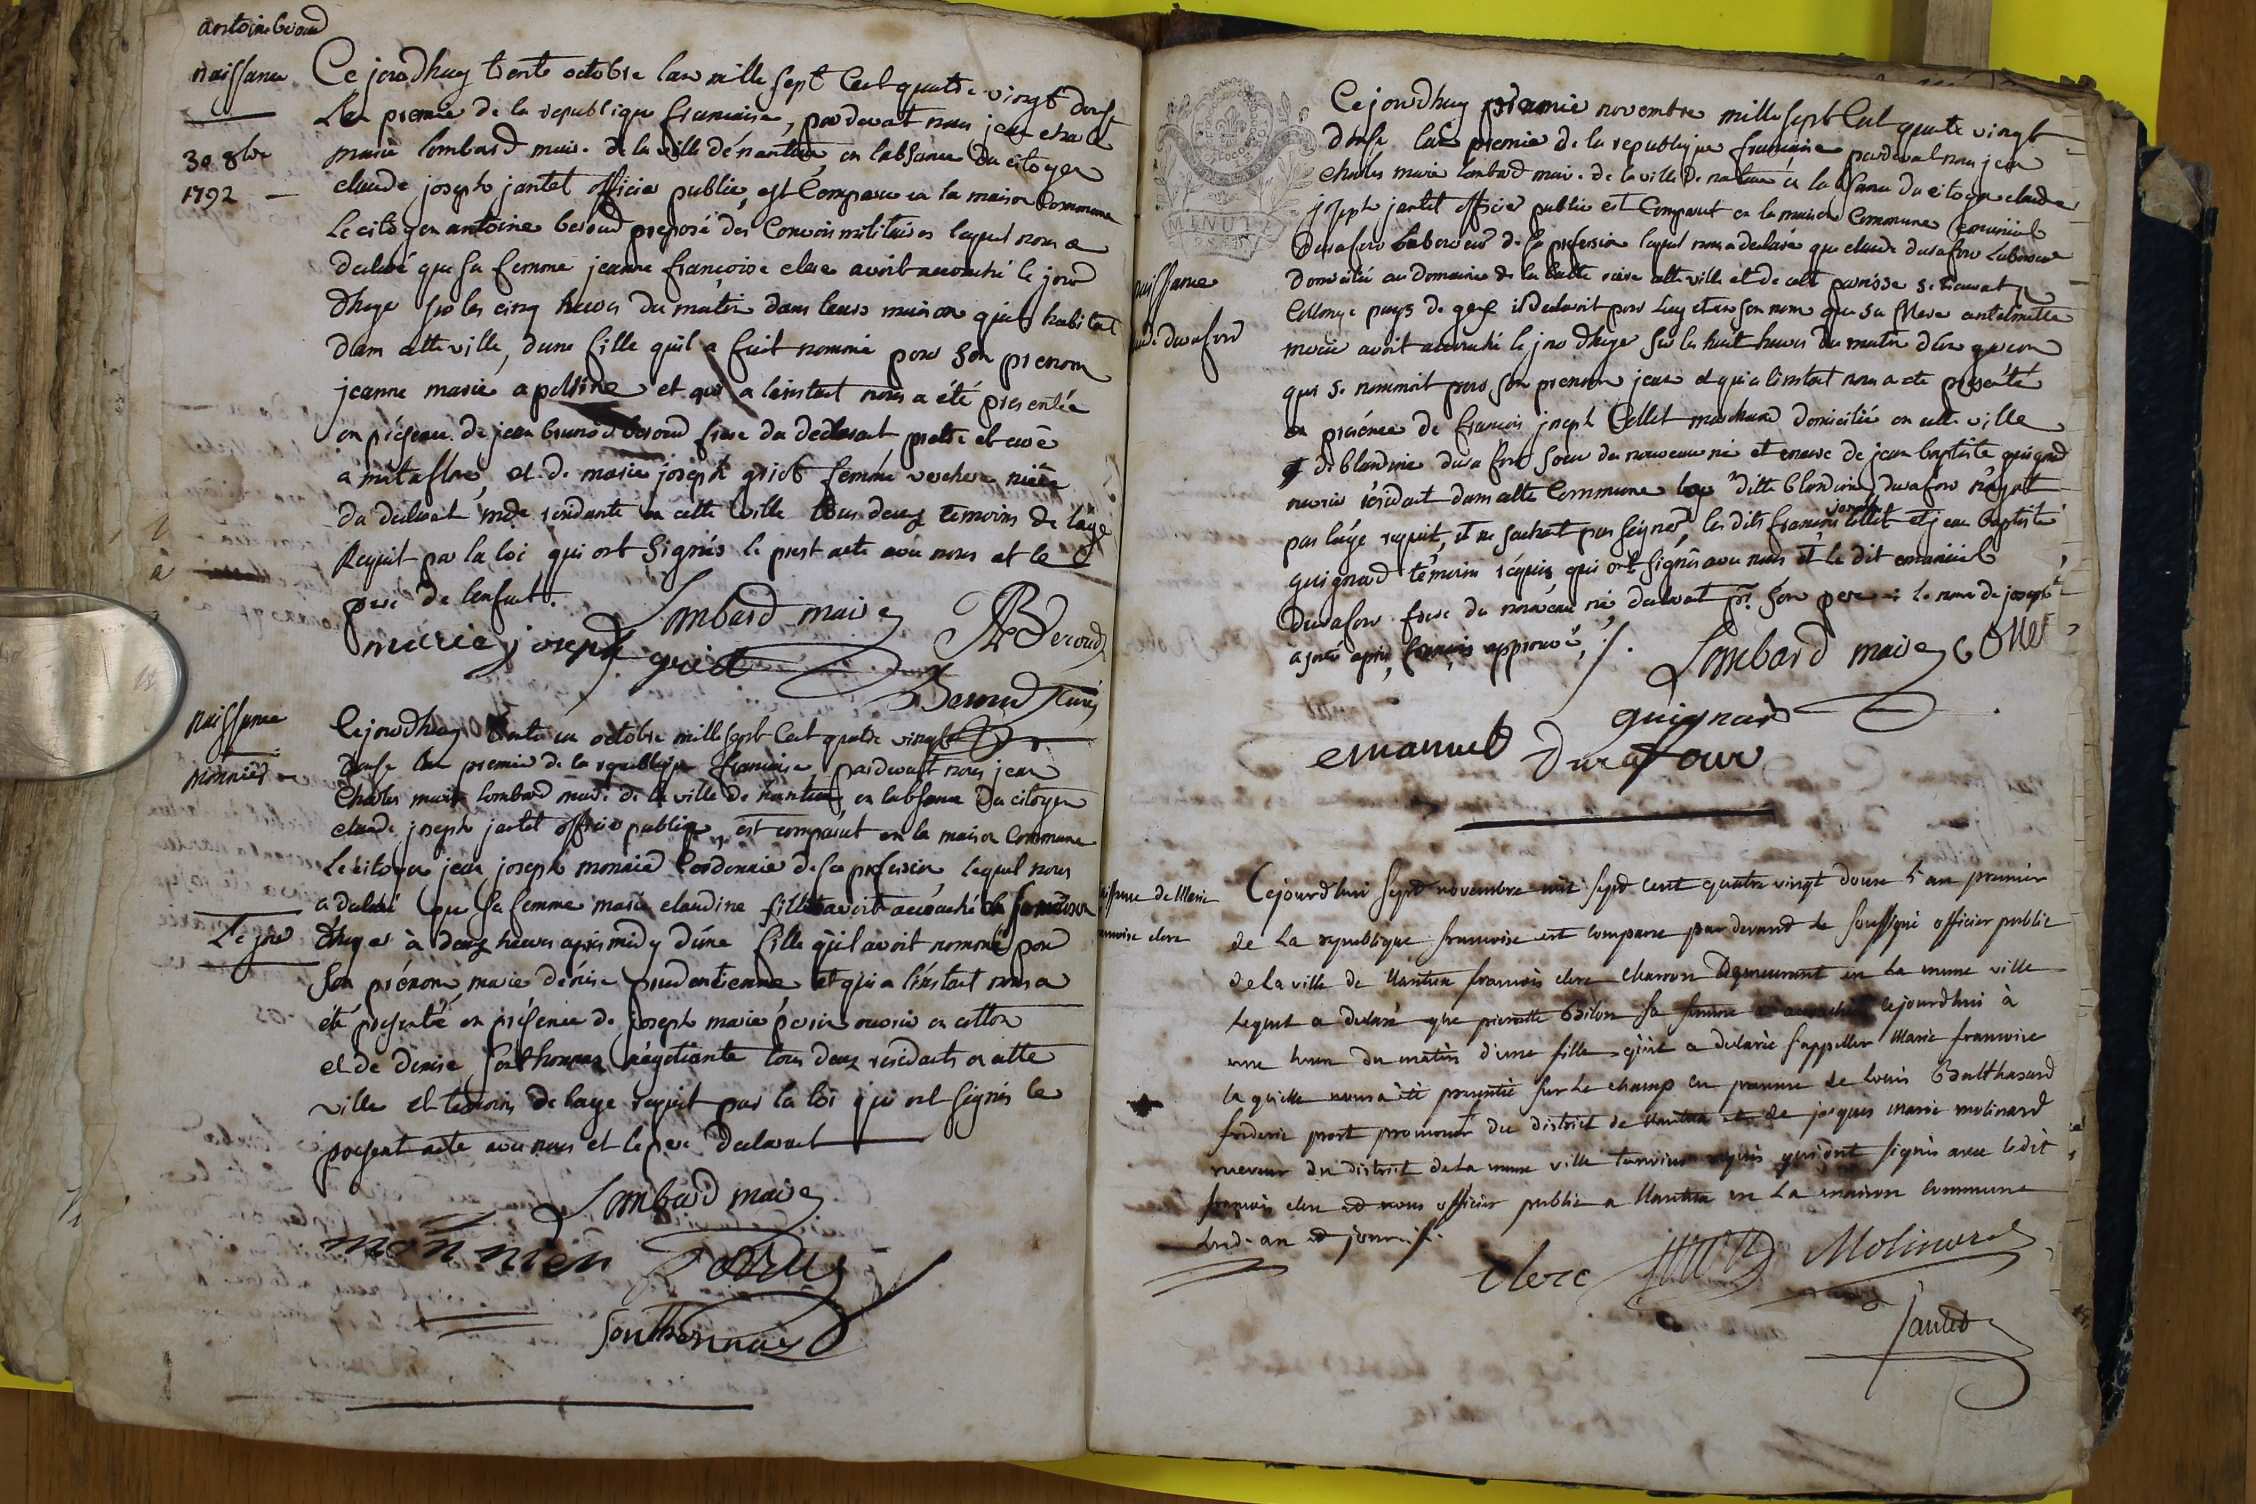 antoine beroud
naissance
30 8bre
1792
Ce jourdhuy trente octobre lan mille sept Cent quatre vingt douse
Lan premie de la republique francaise, pardevant nous jean charle
marie lombard maire de la ville de nantua en labsance du citoyen
claude joseph jantet officier public, est Comparu en la maison Commune
Le citoyen antoine beroud preposé des Convois militaires lequel nous a
declaré que sa femme jeanne francoise clerc avoit accouché le jour
dhuye sur les cinq heures du matin dans leurs maison quils habitent
dans cette ville, dune fille quil a fait nommé pour son prenom
jeanne marie apolline et qui a linstant nous a été presentée
en présence de jean bruno beroud frere du declarant pretre et curé
a et de marie joseph griot femme verchere niece
du declarant mde residante en cette ville tous deux temoins de lage
Requit par la loi, qui ont signés le prest acte avec nous et le
pere de lenfant.
Lombard maire
marie joseph griot
Beroud
Beroud Curé
naissance
monnier
Cejourdhuy trente un octobre mille sept Cent quatre vingt
douse lan premie de la republique francaise, pardevant nous jean
Charles marie lombard maire de la ville de nantua en labsance du citoyen
claude joseph jantet officie publique, est comparut en la maison Commune
Le citoyen jean joseph monnier Cordonnie de sa profession, lequel nous
a declaré que sa femme marie claudine avoit accouché
Le jour
dhuye à deux heures apres midy dune fille quil avoit nommé pour
son prénom marie denise prudentienne et qui a linstant nous a
été presentée en présence de joseph marie ouvrie en cotton
et de denise Sonthonnax négotiante tous deux residants en cette
ville et temoins de lage requit par la loi qui ont signés le
present acte avec nous et le pere declarant
Lombard maire
monnier
Sonthonnax
MINUTE
naissance
durafour
Cejourdhuy premie novembre mille sept Cent quatre vingt
douse lan premie de la republique francaise pardevant nous jean
Charles marie lombard maire de la ville de nantua en labsance du citoyen claude
joseph jantet officier public est Comparut en la maison Commune emaniuel
durafour laboureur de sa profession lequel nous a declaré que claude durafour laboureur
domicilié au domaine de la batte riere cette ville et de cette paroisse se trouvant a
Collonge pays de gex il declaroit pour luy et en son nom que sa mere antelmette
marie avoit accouché le jour dhuye sur les huit heures du matin dun garcon
qui se nommoit pour son prenom jean et qui a linstant nous a été présenté
en présence de francois joseph Collet marchand domicilié en cette ville
et de blandine durafour soeur du nouveau né et encore de jean baptiste guignard
ouvrie résidant dans cette Commune ditte blandine durafour n'ayant
pas l'age requit, et ne sachant pas signer, les dits francois joseph Collet et jean baptiste
guignard témoins réquis qui ont signés avec nous et le dit emaniuel
Durafour frere du nouveau né declarant pr. son pere : le nom de joseph
ajouté apres francois approuvé,
Lombard maire Collet
guignard
emanuel durafour
naissance de Marie
francoise clerc
Cejourd'hui sept novembre mil sept cent quatre vingt douze l'an premier
de La republique francoise est comparu par devant le soussigné officier public
de La ville de Nantua francois clerc charron demeurant en La meme ville
Lequel a declaré que pierrette sa femme a accouché cejourd'hui à
une heure du matin d'une fille qu'il a declaré s'appeller Marie francoise
laquelle nous a été presentée sur Le champ en presence de Louis Balthasard
frederic prost procureur du district de Nantua et de jacques marie molinard
receveur du district de La meme ville temoins requis qui ont signés avec ledit
francois clerc et nous officier public a Nantua en La maison commune
Lesd. an et jour.
Clerc Molinard
Jantet